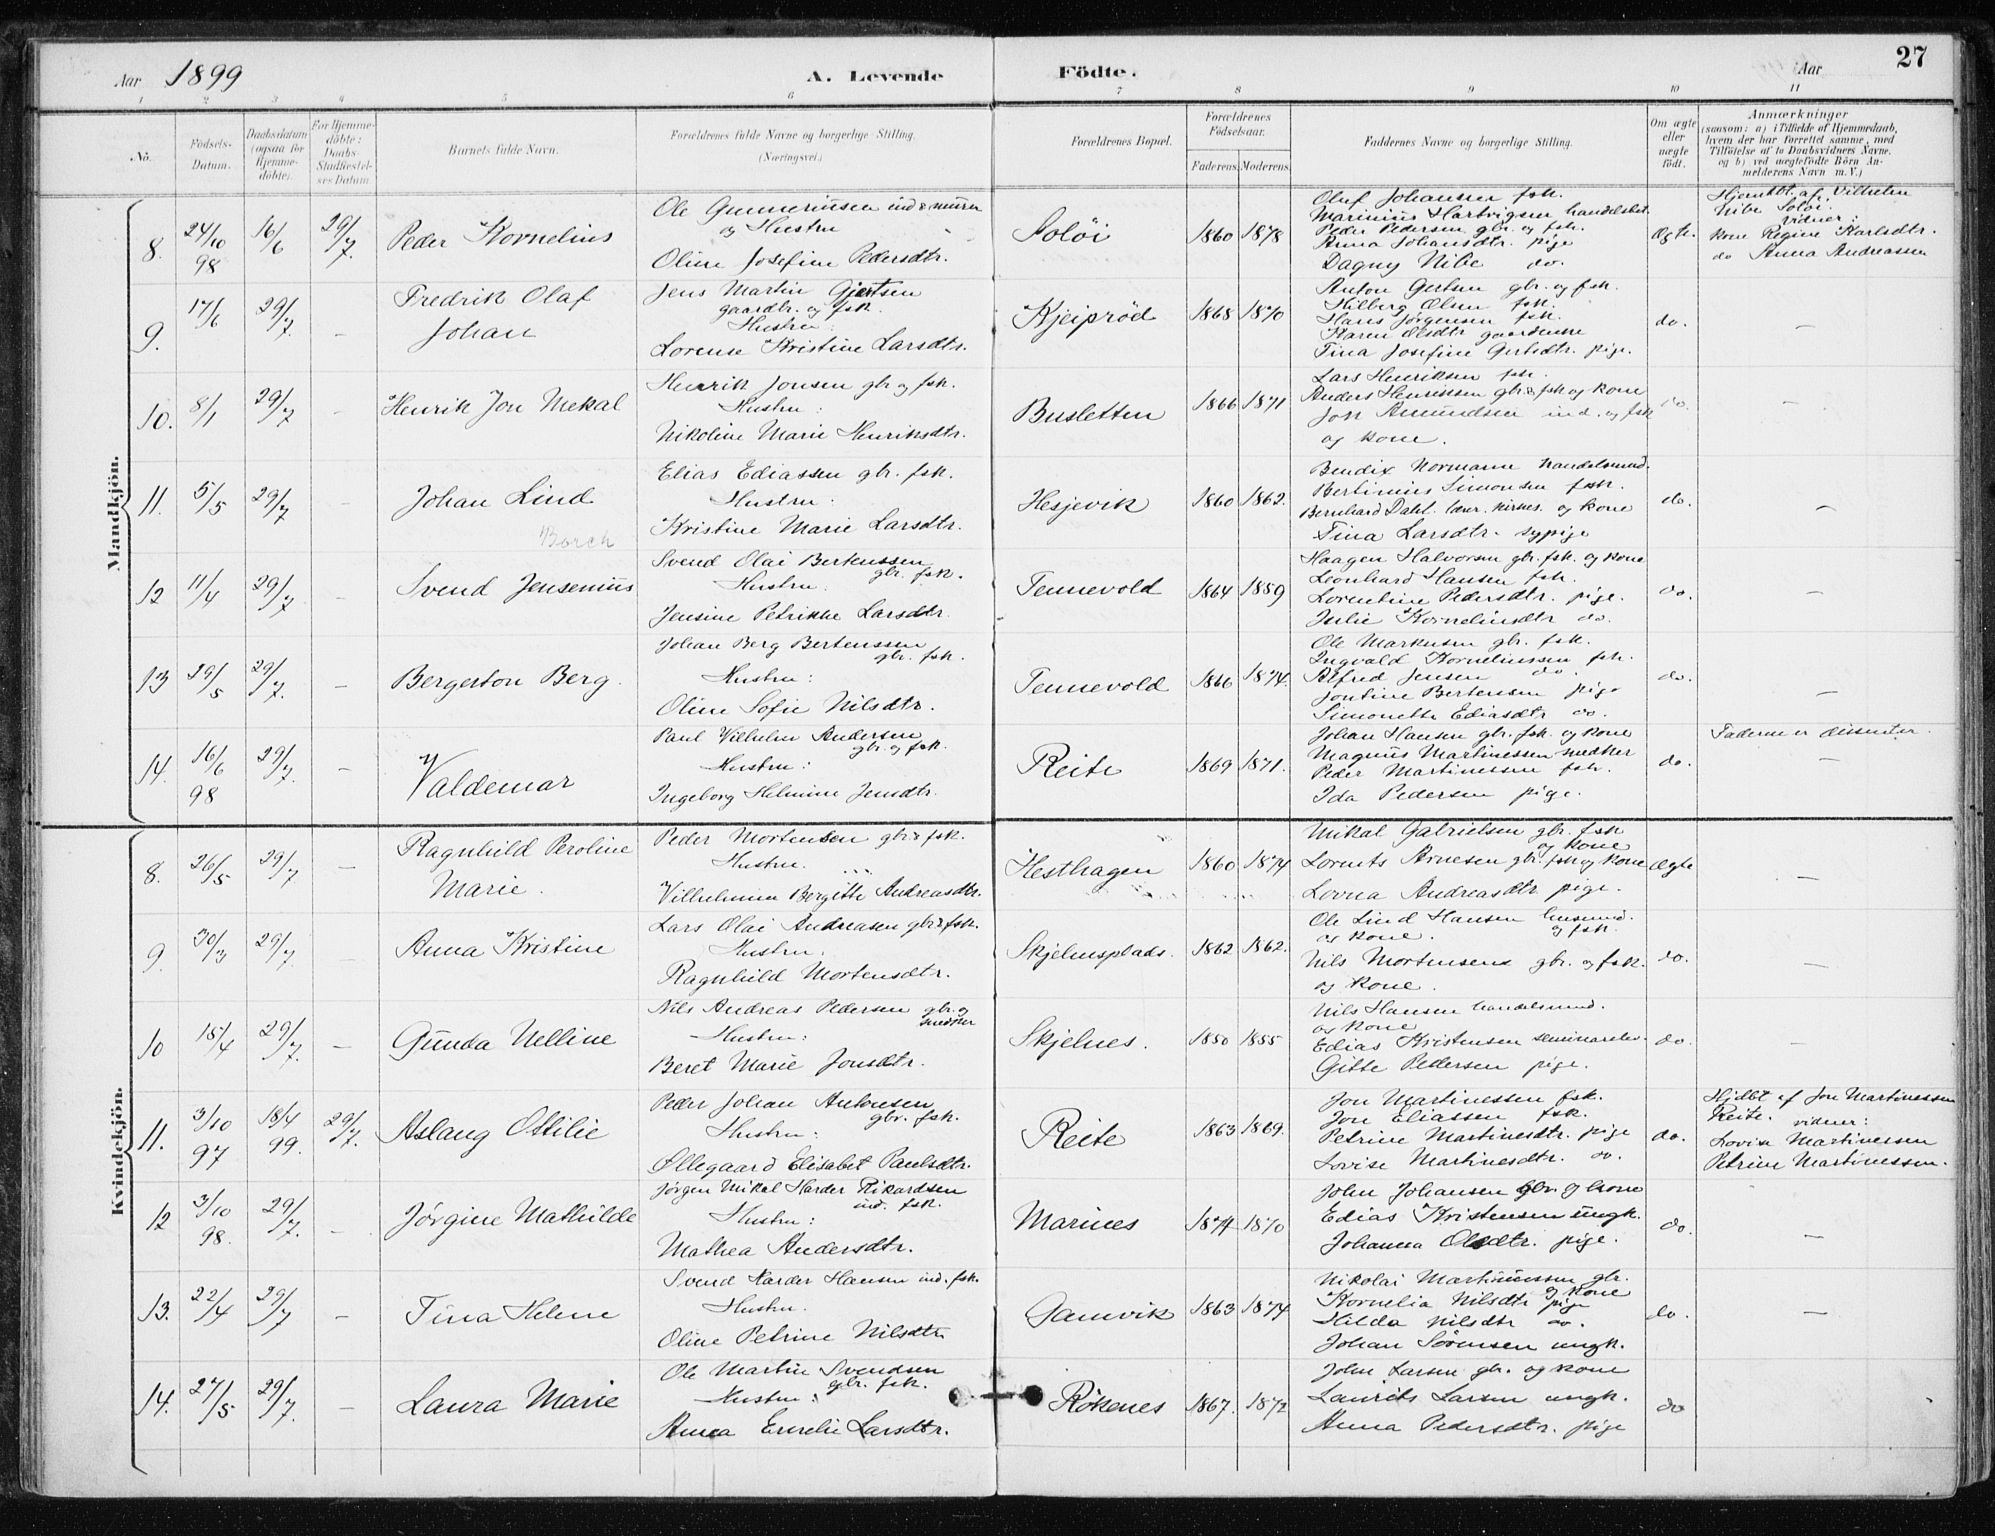 27
Aar 1899 A. Levende Födte. Aar
1 2 3 4 5 6 7 8 9 10 11
No.
Födsels-Datum.
Daabsdatum (ogsaa for Hjemme-döbte).
For Hjemme-döbte: Daabs-Stadfæstel-ses Datum
Barnets fulde Navn.
Forældrenes fulde Navne og borgerlige Stilling.
(Næringsvei.)
Forældrenes Bopæl.
Forældrenes Födselsaar.
Faderens. Moderens.
Faddernes Navne og borgerlige Stilling.
Om ægte eller uægte födt.
Anmærkninger
(saasom: a) i Tilfælde af Hjemmedaab, hvem der har forrettet samme, med Tilföielse af to Daabsvidners Navne. og b) ved uægtefödte Börn An-melderens Navn m. V.)
Mandkjön.
8. 24/10 98 16/6 29/7. Peder Kornelius
Ole Gunneriusen ind & murer
og Hustru
Oline Josefine Pedersdtr.
Soløi 1860 1878
Oluf Johansen fsk.
Marinius Hartvigsen handelsbet.
Peder Pedersen gbr. og fsk.
Anna Johansdtr. pige
Dagny Nibe do.
Ægte.
Hjemdbt. af Vilhelm
Nibe Soløi.
vidner:
kone Regine Karlsdtr.
do Anna Andreassen
9. 17/6 29/7. – Fredrik Olaf
Johan
Jens Martin Gjertsen
gaardbr. og fsk.
Hustru:
Lorense Kristine Larsdtr.
Kjeiprød 1868 1870
Anton Gertsen gbr. og fsk.
Hilberg Olsen fsk.
Hans Jørgensen fsk.
Karen Olsdtr gaardenke
Tina Josefine Gertsdtr. pige.
do. –
10. 8/1 29/7 – Henrik Jon Mekal
Henrik Jonsen gbr og fsk.
Hustru:
Nikoline Marie Henriksdtr.
Busletten 1866 1871
Lars Henriksen fsk.
Anders Henrikssen gbr. & fsk og kone
Joh Amundsen ind. og fsk
og kone.
do. –
11. 5/5 29/7 – Johan Lind
Borch
Elias Ediassen gbr. fsk.
Hustru:
Kristine Marie Larsdtr.
Hesjevik 1860 1862.
Bendix Normann handelsmd.
Bertinius Simonsen fsk.
Bernhard Dahl lærer. og kone
Tina Larsdtr. sypige
do. –
12 11/4 29/7 – Svend Jensenius
Svend Olai Bertenssen
gbr. fsk.
Hustru.
Jensine Petrikke Larsdtr.
Tennevold 1864 1859
Haagen Halvorsen gbr. fsk. og kone
Leonhard Hansen fsk.
Lorentine Pedersdtr. pige.
Julie Kornelinsdtr do.
do. –
13 29/5 29/7. – Bergeton Berg.
Johan Berg Bertenssen
gbr. fsk.
Hustru:
Oline Sofie Nilsdtr.
Tennevold 1866 1874.
Ole Markusen gbr. fsk.
Ingvald Korneliussen fsk.
Alfred Jensen do.
Jontine Bertensen pige
Simonette Ediasdtr do.
do. –
14. 16/6 98 29/7. – Valdemar
Paul Vilhelm Andersen
gbr. og fsk.
Hustru:
Ingeborg Helmine Jensdtr.
Reite 1869 1871.
Johan Hansen gbr. fsk. og kone
Magnus Martinessen snedker
Peder Martinessen fsk.
Ida Pedersen pige.
do.
Faderne er dissenter.
–
Kvindekjön.
8. 26/5 29/7. – Ragnhild Peroline
Marie.
Peder Mortensen gbr & fsk.
Hustru.
Vilhelmina Bergitte Andreasdtr.
Hesthagen 1860 1874
Mikal Gabrielsen gbr. fsk
og kone
Lorents Arnesen gbr. fsk og kone
Lovna Andreasdtr. pige.
Ægte –
9. 30/3 29/7. – Anna Kristine
Lars Olai Andreasen gbr & fsk.
Hustru:
Ragnhild Mortensdtr.
Skjelnesplads. 1862 1862.
Ole Lind Hansen husmd.
og fsk.
og kone.
Nils Mortensens gbr. og fsk.
og kone.
do. –
10 18/4 29/7. – Gunda Nelline
Nils Andreas Pedersen gbr. og
snedker
Hustru:
Beret Marie Jonsdtr.
Skjelnes. 1850 1855
Nils Hansen handelsmd.
og kone
Edias Kristensen seminarelev.
Gitte Pedersen pige.
do. –
11. 3/10 97 18/4 99. 29/7. Aslaug Ottilie
Peder Johan Antonsen
gbr. fsk.
Hustru:
Øllegaard Elisabet Paulsdtr.
Reite 1863 1869.
Jon Martinessen fsk.
Jon Eliassen fsk.
Petrine Martinesdtr. pige
Lovise Martinesdtr. do.
do.
Hjdbt af Jon Martinessen
Reite.
vidner:
Lovise Martinessen
Petrine Martinessen.
12 3/10 98. 29/7. – Jørgine Mathilde
Jørgen Mikal Harder Rikardsen
ind. fsk.
Hustru:
Mathea Andersdtr.
Marines 1874 1870
John Johansen gbr. og kone
Edias Kristensen ungk.
Johanna Olsdtr. pige.
do. –
13. 22/4 29/7 – Tina Helene
Svend Harder Hansen ind. fsk.
Hustru.
Oline Petrine Nilsdtr
Gamvik 1863 1874
Nikolai Martinussen gbr.
og kone
Kornelia Nilsdtr pige
Hilda Nilsdtr do.
Johan Sørensen ungk.
do. –
14. 27/5 29/7. – Laura Marie
Ole Martin Svendsen
gbr. fsk.
Hustru:
Anna Emelie Larsdtr.
Røkenes 1867. 1872
John Larsen gbr. og kone
Laurits Larsen ungk.
Anna Pedersdtr. pige
do